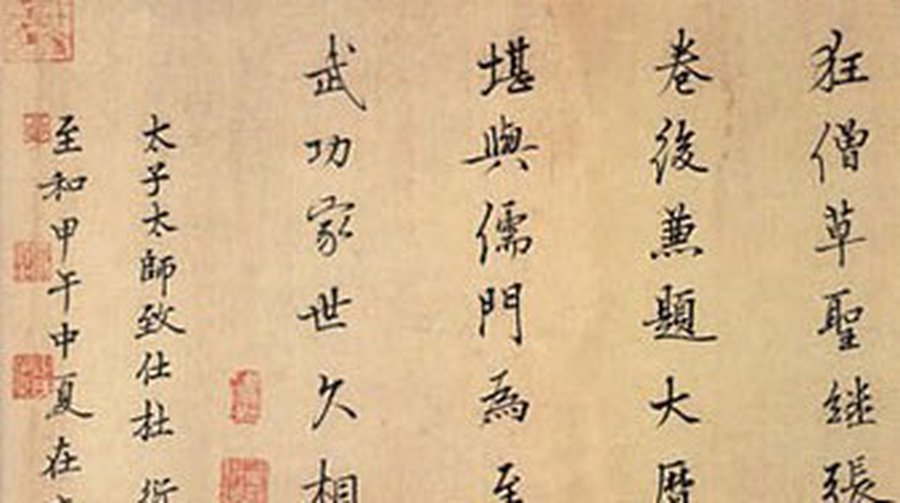 狂僧草聖継張
卷後兼題大曆
堪與儒門為至
武功家世久相
太子太師致仕杜衍
至和甲午中夏在